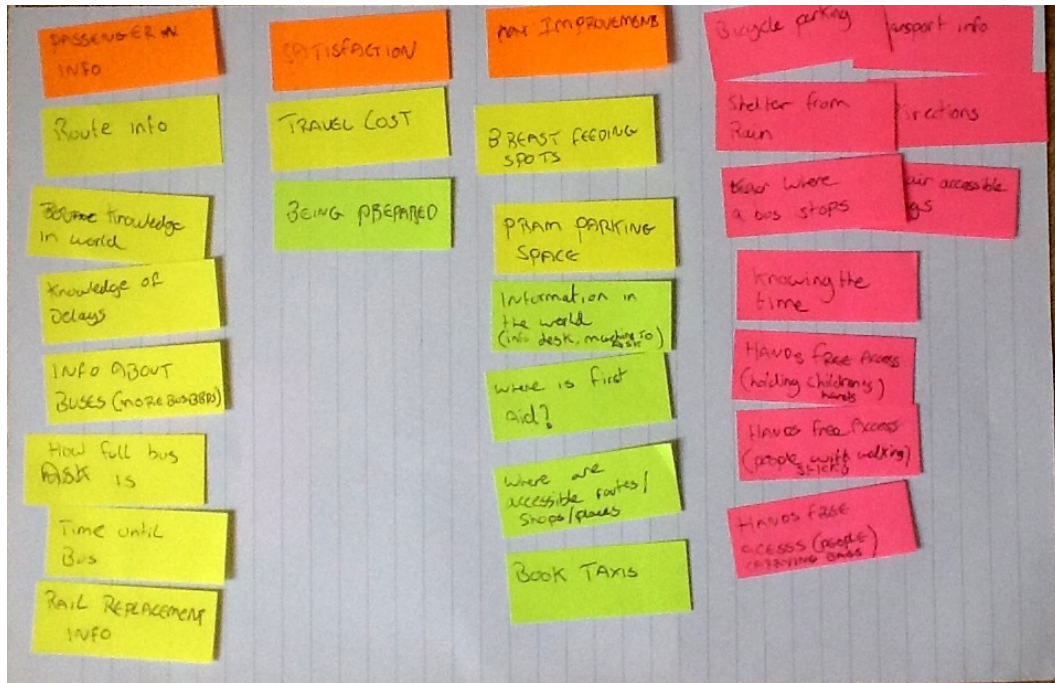 PASSENGER
INFO
Route info
Knowledge
in world
Knowledge of
Delays
INFO ABOUT
BUSES (MORE BUSES)
How full bus
IS
Time until
Bus
RAIL REPLACEMENT
INFO
SATISFACTION
TRAVEL COST
BEING PREPARED
IMPROVEMENT
BREAST FEEDING
SPOTS
PRAM PARKING
SPACE
Information in
the world
(info desk, machine to
ask)
where is first
Aid?
where are
accessible routes/
shops/places
BOOK TAXIS
Bicycle parking
Shelter from
Rain
where
a bus stops
Knowing the
time
HANDS FREE ACCESS
(holding childrens
hands)
HANDS free Access
(people with walking)
sticks
HANDS FREE
ACESSS (PEOPLE)
CARRYING BAGS
nsport info
irections
air accessible